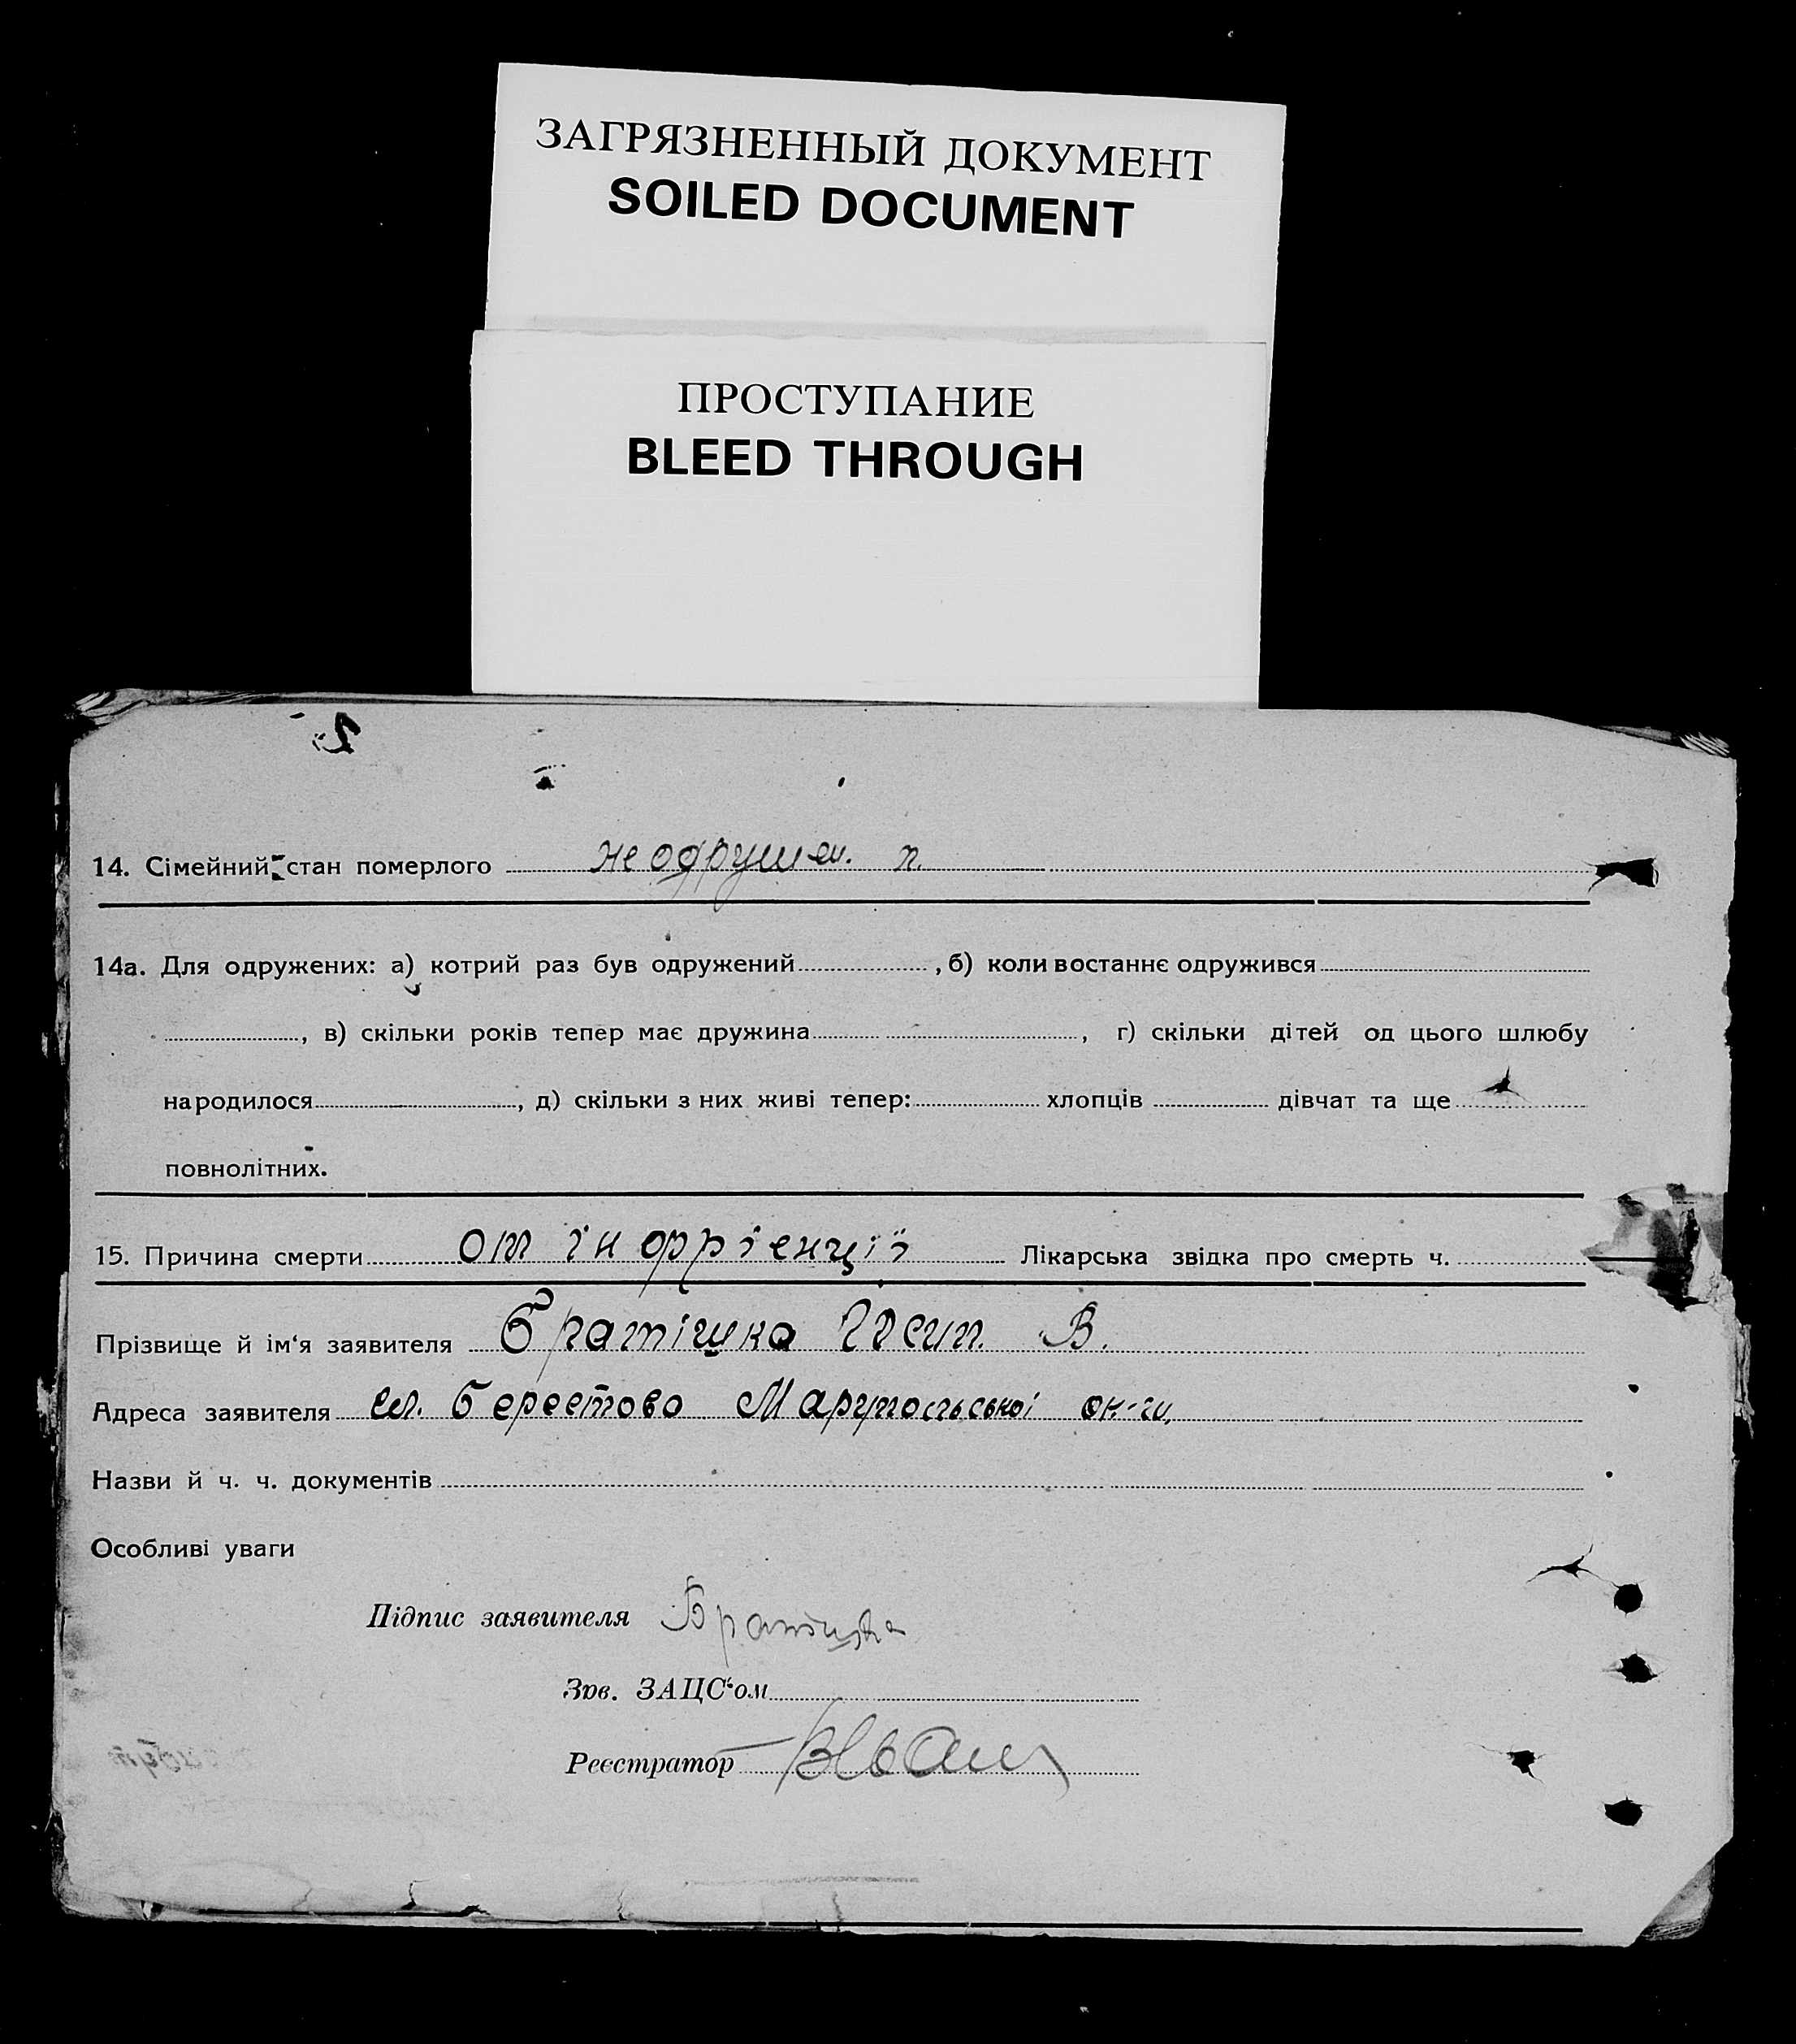 ЗАГРЯЗНЕННЫЙ ДОКУМЕНТ
SOILED DOCUMENT
ПРОСТУПАНИЕ
BLEED THROUGH
14. Сімейний стан померлого неодруж. п.
14а. Для одружених: а) котрий раз був одружений, б) коли востаннє одружився
, в) скільки років тепер має дружина, г) скільки дітей од цього шлюбу
народилося, д) скільки з них живі тепер: хлопців дівчат та ще
повнолітних.
15. Причина смерти от інфрієнції Лікарська звідка про смерть ч.
Прізвище й ім‘я заявителя Братішка Йосип. В.
Адреса заявителя сл. Берестово Марупольської ок-ги,
Назви й ч. ч. документів
Особливі уваги
Підпис заявителя Братішка
Зав. ЗАЦС‘ом
Реєстратор